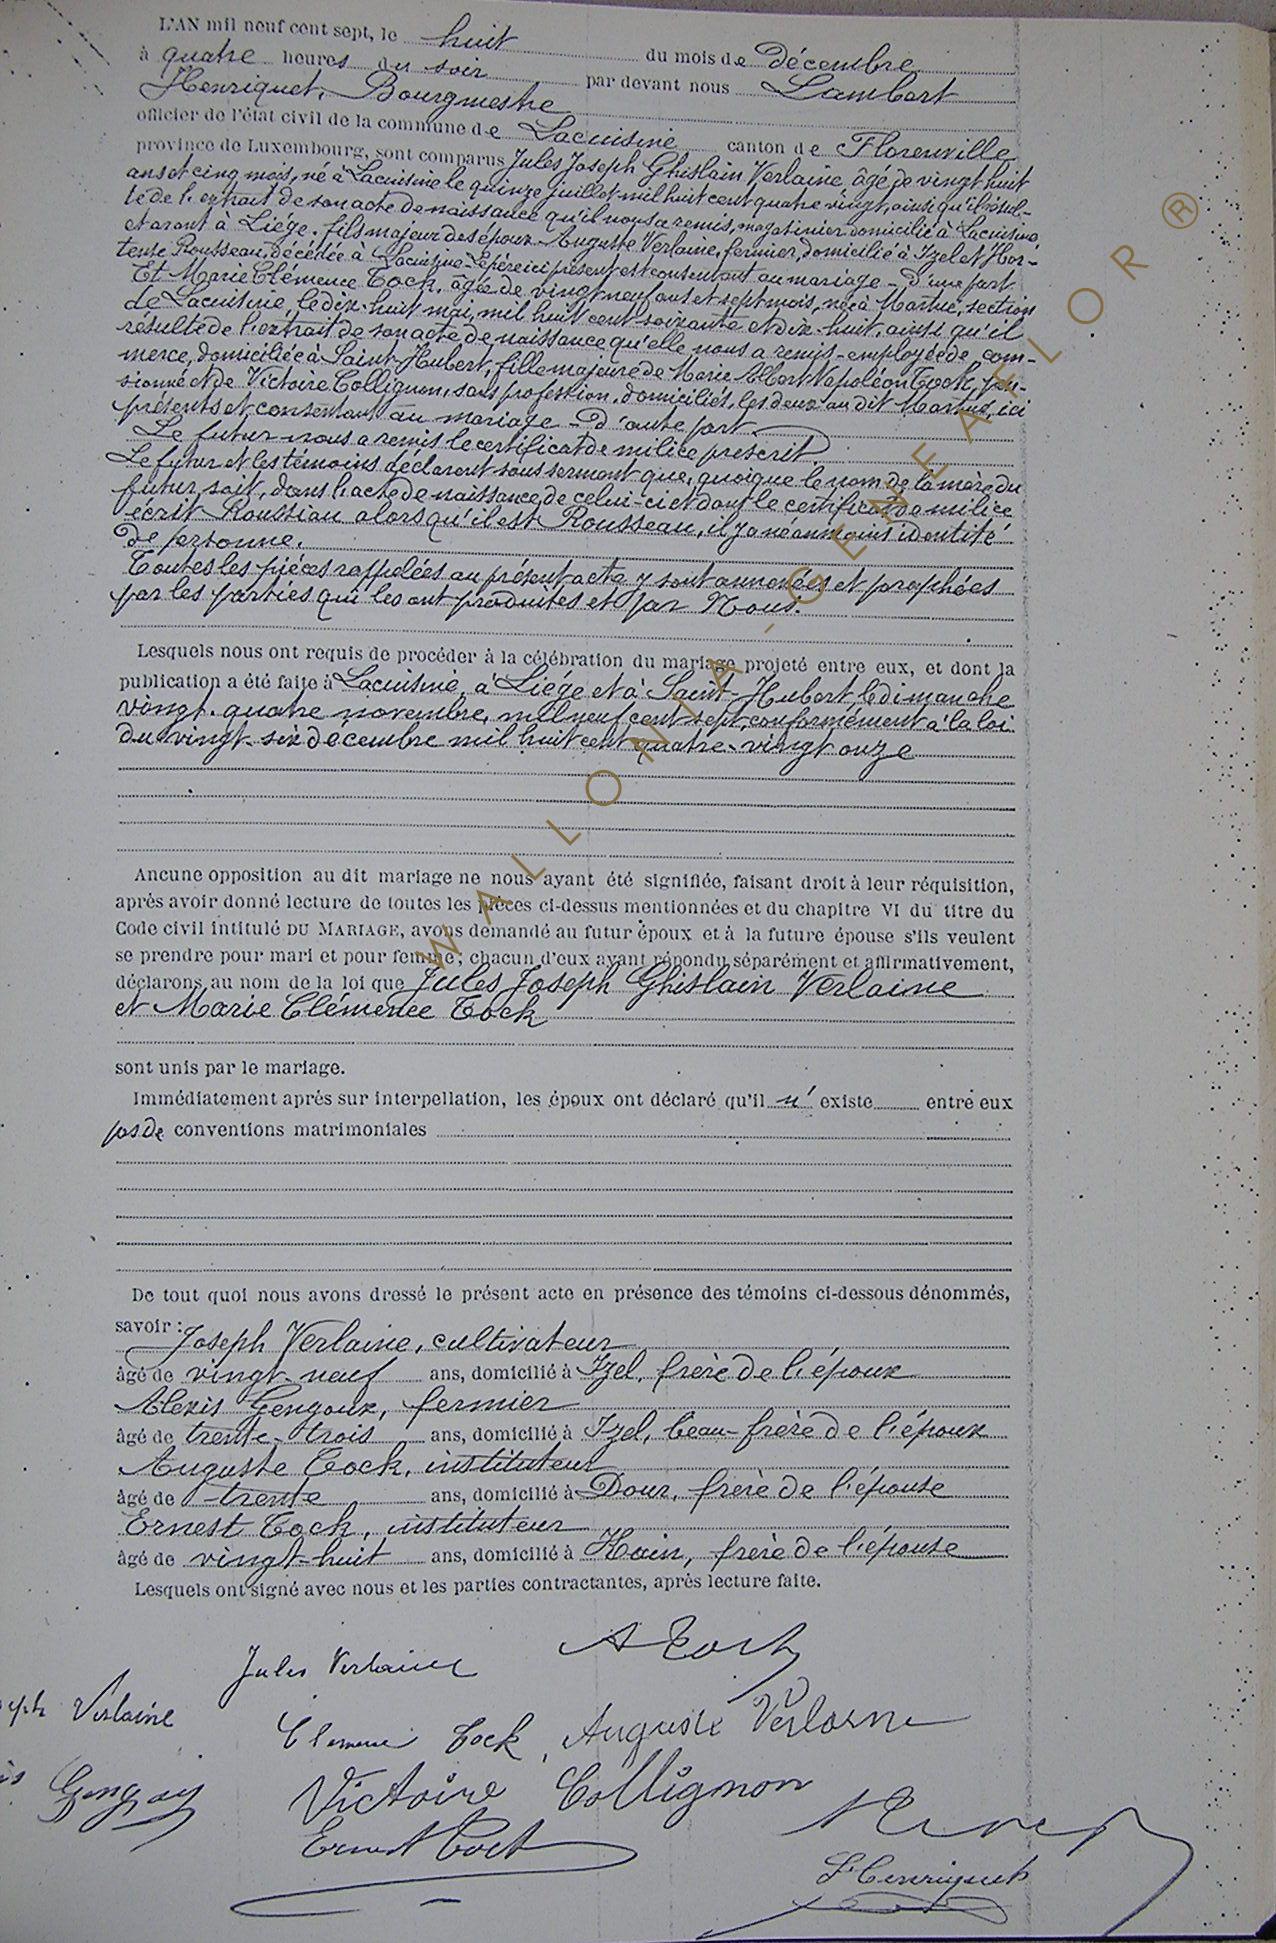 L'AN mil neuf cent sept, le huit du mois de Décembre
à quatre heures du soir par devant nous Lambert
Henriquet, Bourgmestre
officier de l'état civil de la commune de Lacuisine canton de Florenville
province de Luxembourg, sont comparus Jules Joseph Ghislain Verlaine âgé de vingt huit
ans et cinq mois, né à Lacuisine le quinze juillet mil huit cent quatre vingt, ainsi qu'il résul-
te de l'extrait de son acte de naissance qu'il nous a remis, magasinier domicilié à Lacuisine
et avant à Liége. fils majeur des époux Auguste Verlaine, fermier, domicilié à Izel et Hor-
tense Rousseau, décédée à Lacuisine - le père ici présent et consentant au mariage - d'une part
Et Marie Clémence Tock, âgée de vingt neuf ans et sept mois, née à Martué, section
de Lacuisine, le dix-huit mai, mil huit cent soixante et dix-huit, ainsi qu'il
résulte de l'extrait de son acte de naissance qu'elle nous a remis - employée de com-
merce, domiciliée à Saint-Hubert, fille majeure de Marie Albert Napoléon Tock, pen-
sionné et de Victoire Collignon, sans profession, domiciliés, les deux au dit Martué, ici
présents et consentant au mariage - D'autre part.
Le futur nous a remis le certificat de milice prescrit.
Le futur et les témoins déclarent sous serment que, quoique le nom de la mère du
futur soit, dans l'acte de naissance de celui-ci et dans le certificat de milice
écrit Roussiau alors qu'il est Rousseau, il y a néanmoins identité
de personne.
Toutes les pièces rappelées au présent acte y sont annexées et paraphées
par les parties qui les ont produites et par Nous.
Lesquels nous ont requis de procéder à la célébration du mariage projeté entre eux, et dont la
publication a été faite à Lacuisine, à Liége et à Saint-Hubert, le dimanche
vingt-quatre novembre, mil neuf cent sept, conformément à la loi
du vingt-six décembre mil huit cent quatre-vingt onze
Aucune opposition au dit mariage ne nous ayant été signifiée, faisant droit à leur réquisition,
après avoir donné lecture de toutes les pièces ci-dessus mentionnées et du chapitre VI du titre du
Code civil intitulé DU MARIAGE, avons demandé au futur époux et à la future épouse s'ils veulent
se prendre pour mari et pour femme; chacun d'eux ayant répondu séparément et affirmativement,
déclarons au nom de la loi que Jules Joseph Ghislain Verlaine
et Marie Clémence Tock
sont unis par le mariage.
Immédiatement après sur interpellation, les époux ont déclaré qu'il n' existe entre eux
pas de conventions matrimoniales
De tout quoi nous avons dressé le présent acte en présence des témoins ci-dessous dénommés,
savoir: Joseph Verlaine, cultivateur
âgé de vingt-neuf ans, domicilié à Izel, frère de l'époux
Alexis Gengoux, fermier
âgé de trente-trois ans, domicilié à Izel, beau-frère de l'époux
Auguste Tock, instituteur
âgé de trente ans, domicilié à Dour, frère de l'épouse
Ernest Tock, instituteur
âgé de vingt-huit ans, domicilié à Kain, frère de l'épouse
Lesquels ont signé avec nous et les parties contractantes, après lecture faite.
Jules Verlaine A Tock
Verlaine
Clémence Tock, Auguste Verlaine
Victoire Collignon
Ernest Tock
L Henriquet
WALLONIA-GENEALOR ®